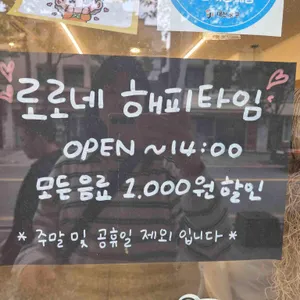 로로네 해피타임
OPEN ~14:00
모든음료 1.000원할인
* 주말 및 공휴일 제외 입니다 *